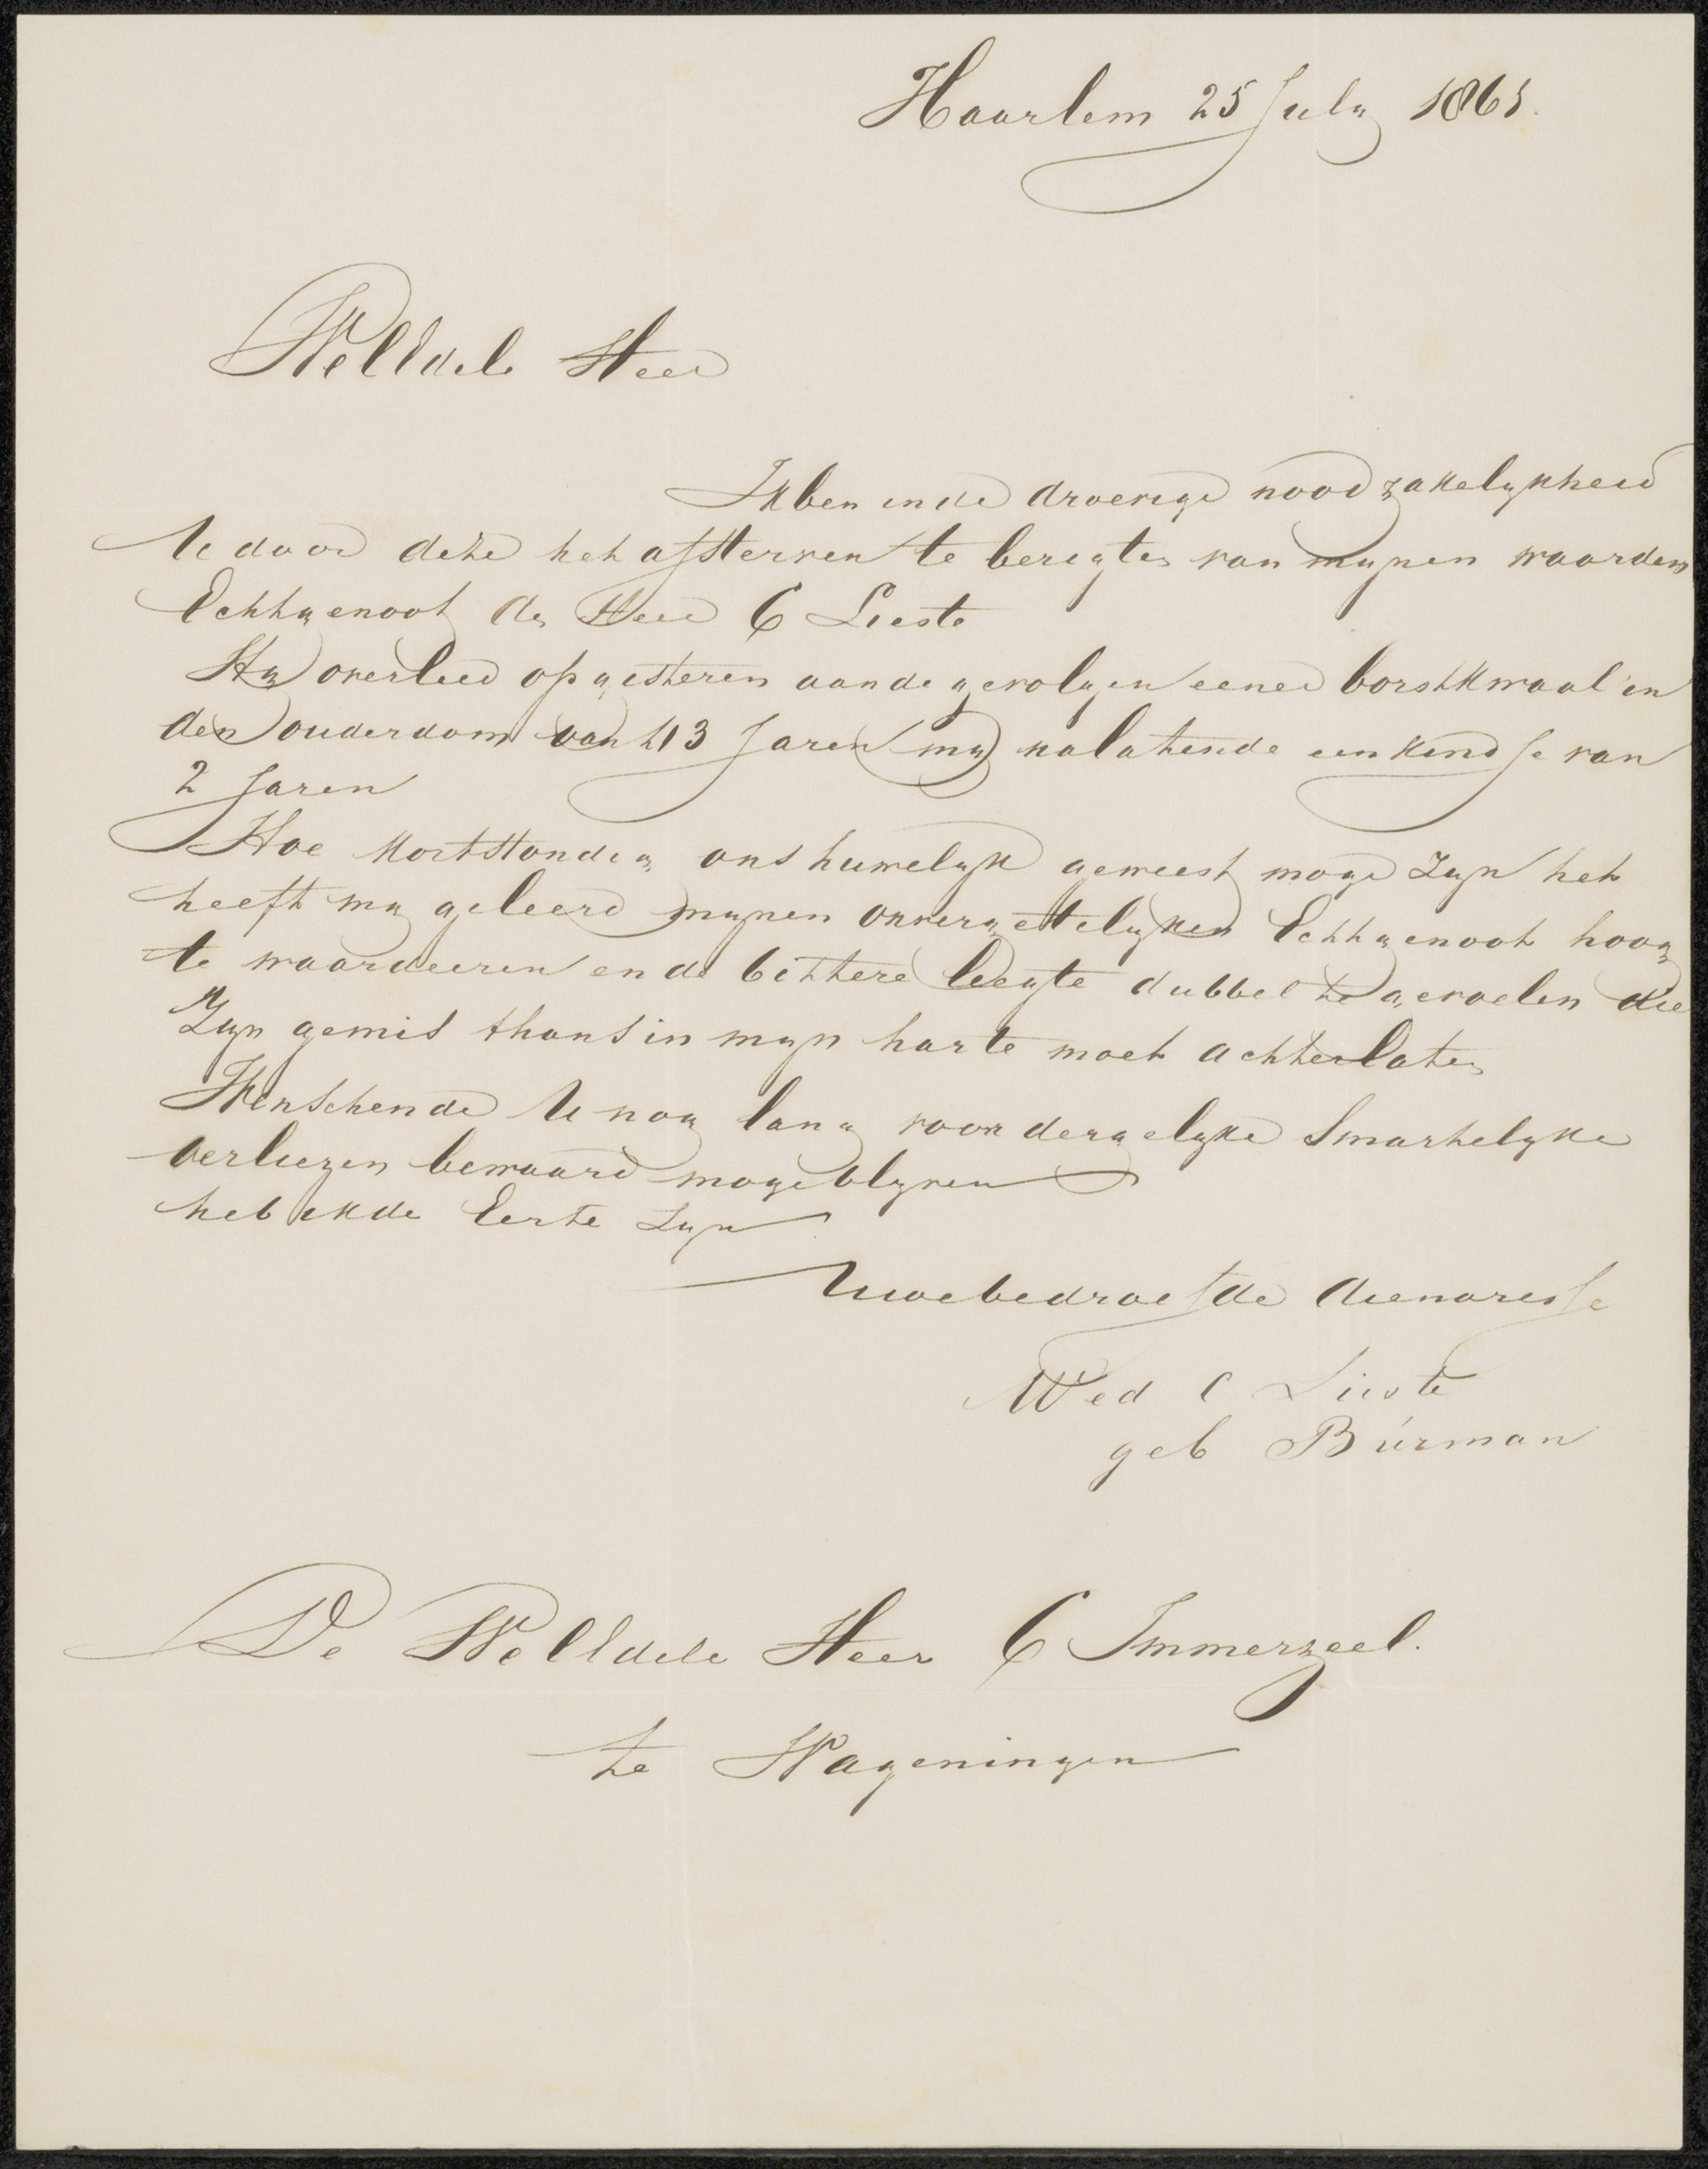 Haarlem 25 July 1861.
WelEdele Heer
Ik ben in de droevige noodzakelykheid
U door deze het afsterven te berigten van mynen waarden
Echtgenoot de Heer C Lieste
Hy overleed op gisteren aan de gevolgen eener borstkwaal in
den ouderdom van 43 Jaren my nalatende een kindje van
2 Jaren
Hoe kortstondig ons huwelyk geweest moge zyn het
heeft my geleerd mynen onvergettelyken Echtgenoot hoog
te waardeeren en de bittere leegte dubbel te gevoelen die
Zyn gemis thans in myn harte moet achterlaten
Wenschende U nog lang voor dergelyke Smartelyke
verliezen bewaard moge blyven
heb ik de Eerte zyn
Uwe bedroefde dienaresse
Wed C Lieste
geb Búrman
De WelEdele Heer C Immerzeel.
te Wageningen